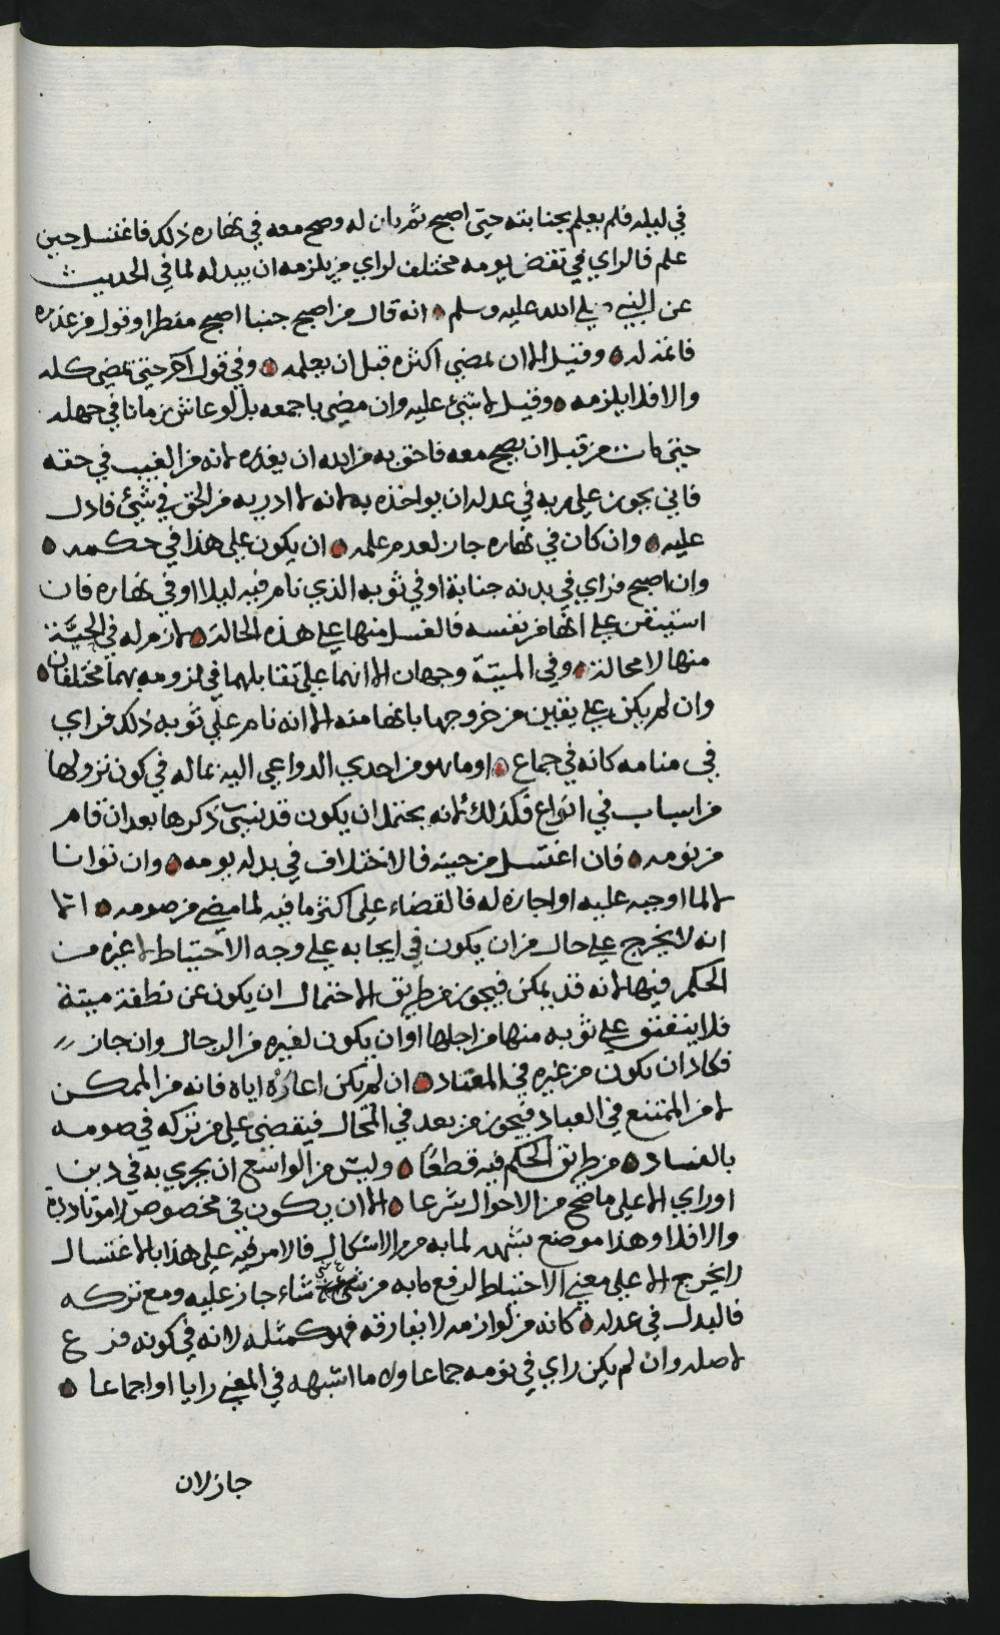 في ليله فلم يعلم بجنابته حتى اصبح ثم بان له وصح معه في نهاره ذلك فاغتسل حين
علم فالراي في نقض يومه مختلف لراي من يلزمه ان يبدله لما في الحديث
عن النبي صلى الله عليه وسلم انه قال من اصبح جنبا اصبح مفطرا وقول من عذره
فاعذ له وقيل الا ان يمضي اكثره قبل ان يعلمه وفي قول آخر حتى يمضي كله
والا فلا يلزمه وقيل لا شئ عليه وان مضى باجمعه بل لو عاش زمانا في جهله
حتى مات من قبل ان يصح معه فاحق به من الله ان يعذره لانه من الغيب في حقه
فانى يجوز على ربه في عدله ان يواخذه به لانه لا ادري به من الحق في شئ فادل
عليه وان كان في نهاره جاز لعدم علمه ان يكون على هذا في حكمه
وان اصبح فراي في بدنه جنابة او في ثوبه الذي نام فيه ليلا او في نهاره فان
استيقن على انها من نفسه فالغسل منها على هذه الحالة لازم له في الحيّة
منها لا محالة وفي الميتة وجهان الا انهما على تقابلهما في لزومه بهما مختلفان
وان لم يكن على يقين من خروجها بانها منه الا انه نام على ثوبه ذلك فراي
في منامه كانه في جماع او ما هو من احدي الدواعي اليه بماله في كون نزولها
من اسباب في انواع فكذلك لانه يحتمل ان يكون قد نسي ذكرها بعد ان قام
من نومه فان اغتسل من حينه فالاختلاف في بدله يومه وان توانا
لا لما اوجبه عليه او اجازه له فالقضاء على اكثر ما فيه لما مضى من صومه الا
انه لا يخرج على حال من ان يكون في ايجابه على وجه الاحتياط لا غيره من
الحكم فيها لانه قد يمكن فيجوز من طريق الاحتمال ان يكون عن نطفة ميتة
فلا يتفق على ثوبه منها من اجلها او ان يكون لغيره من الرجال وان جاز
فكاد ان يكون من غيره في المعتاد ان لم يكن اعاره اياه فانه من الممكن
لا من الممتنع في العباد فيجوز من بعد في الحال فيقضى على من تركه في صومه
بالفساد من طريق الحكم فيه قطعا وليس من الواسع ان يجري به في دين
او راي الا على ما صح من الاحوال شرعا الا ان يكون في مخصوص لامر تاديه
والا فلا وهذا موضع شبهه لما به من الاشكال فالامر فيه على هذا بالاغتسال
لا يخرج الا على معنى الاحتياط لدفع ما به من شئ شاء جاز عليه ومع تركه
فالبدل في عدله كانه من لوازمه لا يفارقه فهو كمثله لانه في كونه فرع
لاصله وان لم يكن راي في نومه جماعا ولا ما اشبهه في المعنى رايا او اجماعا
جاز لان